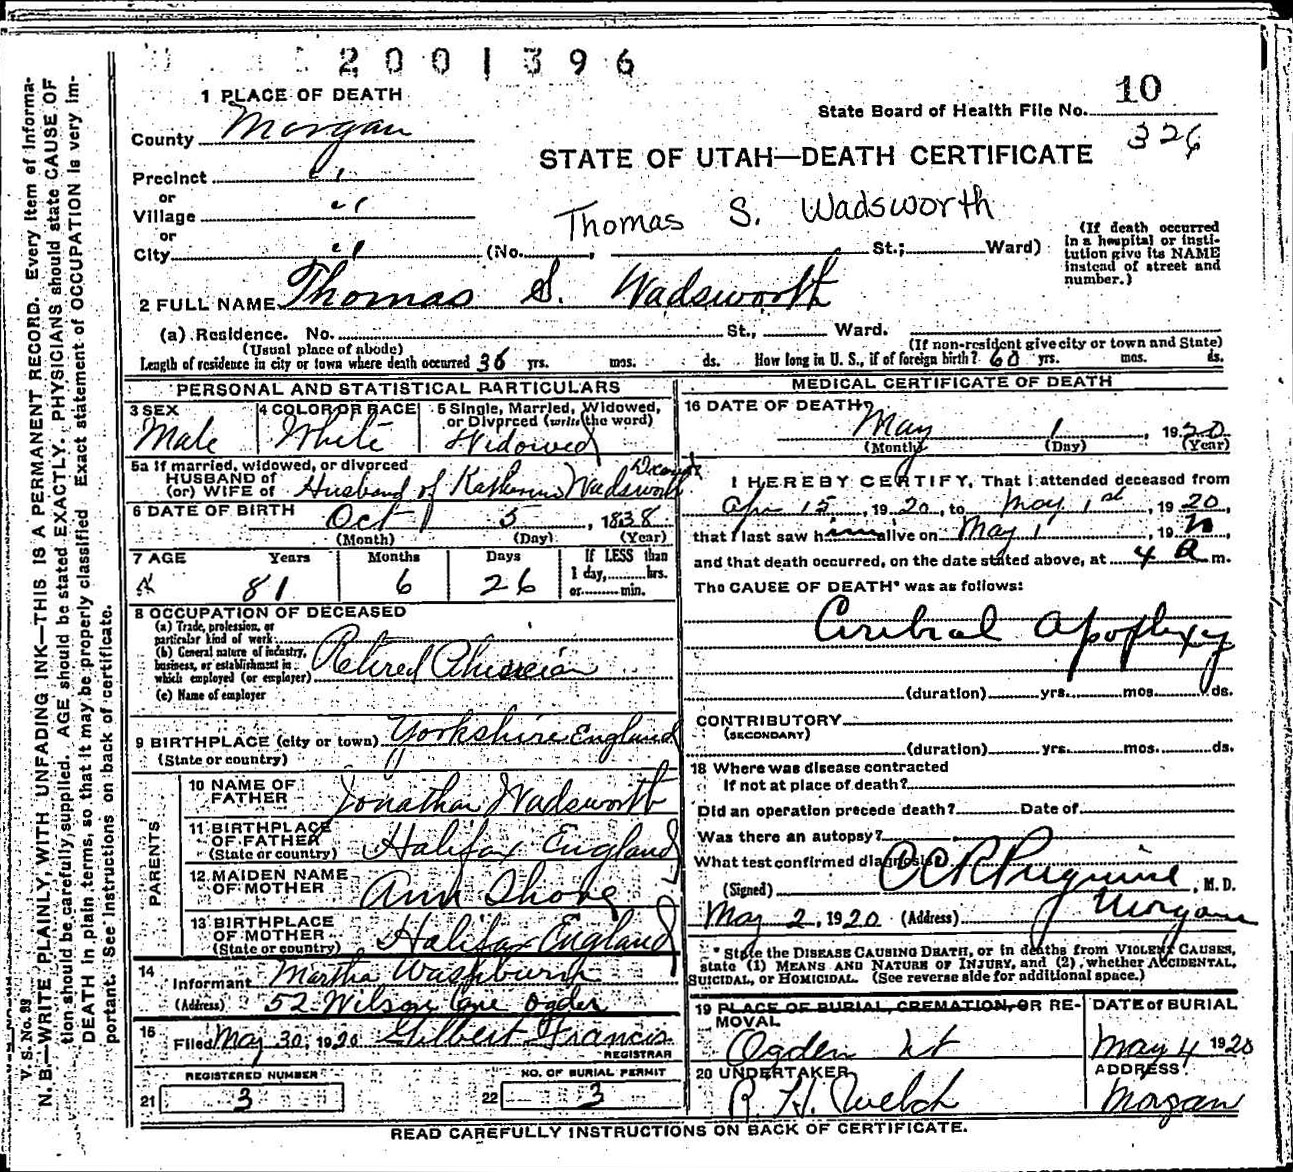 2001396
1 PLACE OF DEATH
State Board of Health File No. 10
326
County Morgan
STATE OF UTAH—DEATH CERTIFICATE
Precinct " "
or
Village " "
Thomas S. Wadsworth
or
City " " (No. , St.; Ward)
(If death occurred in a hospital or institution give its NAME instead of street and number.)
2 FULL NAME Thomas S. Wadsworth
(a) Residence. No. St., Ward.
(Usual place of abode) (If non-resident give city or town and State)
Length of residence in city or town where death occurred 36 yrs. mos. ds. How long in U. S., if of foreign birth? 60 yrs. mos. ds.
PERSONAL AND STATISTICAL PARTICULARS
3 SEX Male
4 COLOR OR RACE White
5 Single, Married, Widowed, or Divorced (write the word) Widowed
5a If married, widowed, or divorced
HUSBAND of
(or) WIFE of Husband of Katherine Wadsworth
6 DATE OF BIRTH Oct 5, 1838
(Month) (Day) (Year)
7 AGE Years Months Days If LESS than
81 6 26 1 day, hrs.
or min.
8 OCCUPATION OF DECEASED
(a) Trade, profession, or
particular kind of work
(b) General nature of industry,
business, or establishment in
which employed (or employer) Retired Physician
(c) Name of employer
9 BIRTHPLACE (city or town) Yorkshire England
(State or country)
PARENTS
10 NAME OF
FATHER Jonathan Wadsworth
11 BIRTHPLACE
OF FATHER Halifax England
(State or country)
12 MAIDEN NAME
OF MOTHER Ann Shove
13 BIRTHPLACE
OF MOTHER Halifax England
(State or country)
14
Informant Martha Washburn
(Address) 52 Wilson Ave Ogden
15
Filed May 30, 1920 Gilbert Francis
REGISTRAR
REGISTERED NUMBER
21 3
NO. OF BURIAL PERMIT
22 3
MEDICAL CERTIFICATE OF DEATH
16 DATE OF DEATH
May 1, 1920
(Month) (Day) (Year)
I HEREBY CERTIFY, That I attended deceased from
Apr 15, 1920, to May 1st, 1920,
that I last saw him alive on May 1, 19
and that death occurred, on the date stated above, at 4 a m.
The CAUSE OF DEATH* was as follows:
Cerebral Apoplexy
(duration) yrs. mos. ds.
CONTRIBUTORY
(SECONDARY)
(duration) yrs. mos. ds.
18 Where was disease contracted
If not at place of death?
Did an operation precede death? Date of
Was there an autopsy?
What test confirmed diagnosis?
(Signed) , M. D.
May 2, 1920 (Address) Morgan
* State the DISEASE CAUSING DEATH, or in deaths from VIOLENT CAUSES,
state (1) MEANS AND NATURE OF INJURY, and (2), whether ACCIDENTAL,
SUICIDAL, or HOMICIDAL. (See reverse side for additional space.)
19 PLACE OF BURIAL, CREMATION, OR RE-
MOVAL
Ogden Ut
DATE of BURIAL
May 4 1920
20 UNDERTAKER
R. H. Welch
ADDRESS
Morgan
READ CAREFULLY INSTRUCTIONS ON BACK OF CERTIFICATE.
V. S. No. 99
N. B.—WRITE PLAINLY, WITH UNFADING INK—THIS IS A PERMANENT RECORD. Every item of informa-
tion should be carefully supplied. AGE should be stated EXACTLY. PHYSICIANS should state CAUSE OF
DEATH in plain terms, so that it may be properly classified. Exact statement of OCCUPATION is very im-
portant. See instructions on back of certificate.